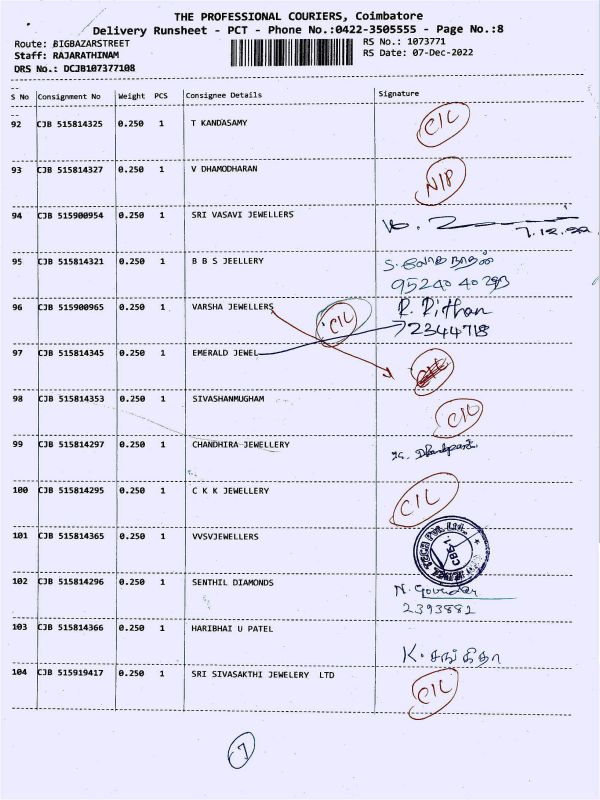 THE PROFESSIONAL COURIERS, Coimbatore
Delivery Runsheet - PCT - Phone No.:0422-3505555 - Page No.:8
Route: BIGBAZARSTREET RS No.: 1073771
Staff: RAJARATHINAM RS Date: 07-Dec-2022
DRS No.: DCJB107377108
S No Consignment No Weight PCS Consignee Details Signature
92 CJB 515814325 0.250 1 T KANDASAMY C/L
93 CJB 515814327 0.250 1 V DHAMODHARAN N/P
94 SRI VASAVI JEWELLERS CJB 515900954 0.250 1
7.12.22
95 CJB 515814321 0.250 1 B B S JEELLERY
96 CJB 515900965 0.250 1 VARSHA JEWELLERS C/L R. Rithan
2344718
97 CJB 515814345 0.250 1 EMERALD JEWEL
98 CJB 515814353 0.250 1 SIVASHANMUGHAM C/L
99 CJB 515814297 0.250 1 CHANDHIRA JEWELLERY
100 CJB 515814295 0.250 1 C K K JEWELLERY C/L
101 CJB 515814365 0.250 1 VVSVJEWELLERS
TECH PVT. LTD.
CBE-1
102 CJB 515814296 0.250 1 SENTHIL DIAMONDS N. Govindan
2393882
103 CJB 515814366 0.250 1 HARIBHAI U PATEL
K. சங்கீதா
104 CJB 515919417 0.250 1 SRI SIVASAKTHI JEWELERY LTD C/L
7